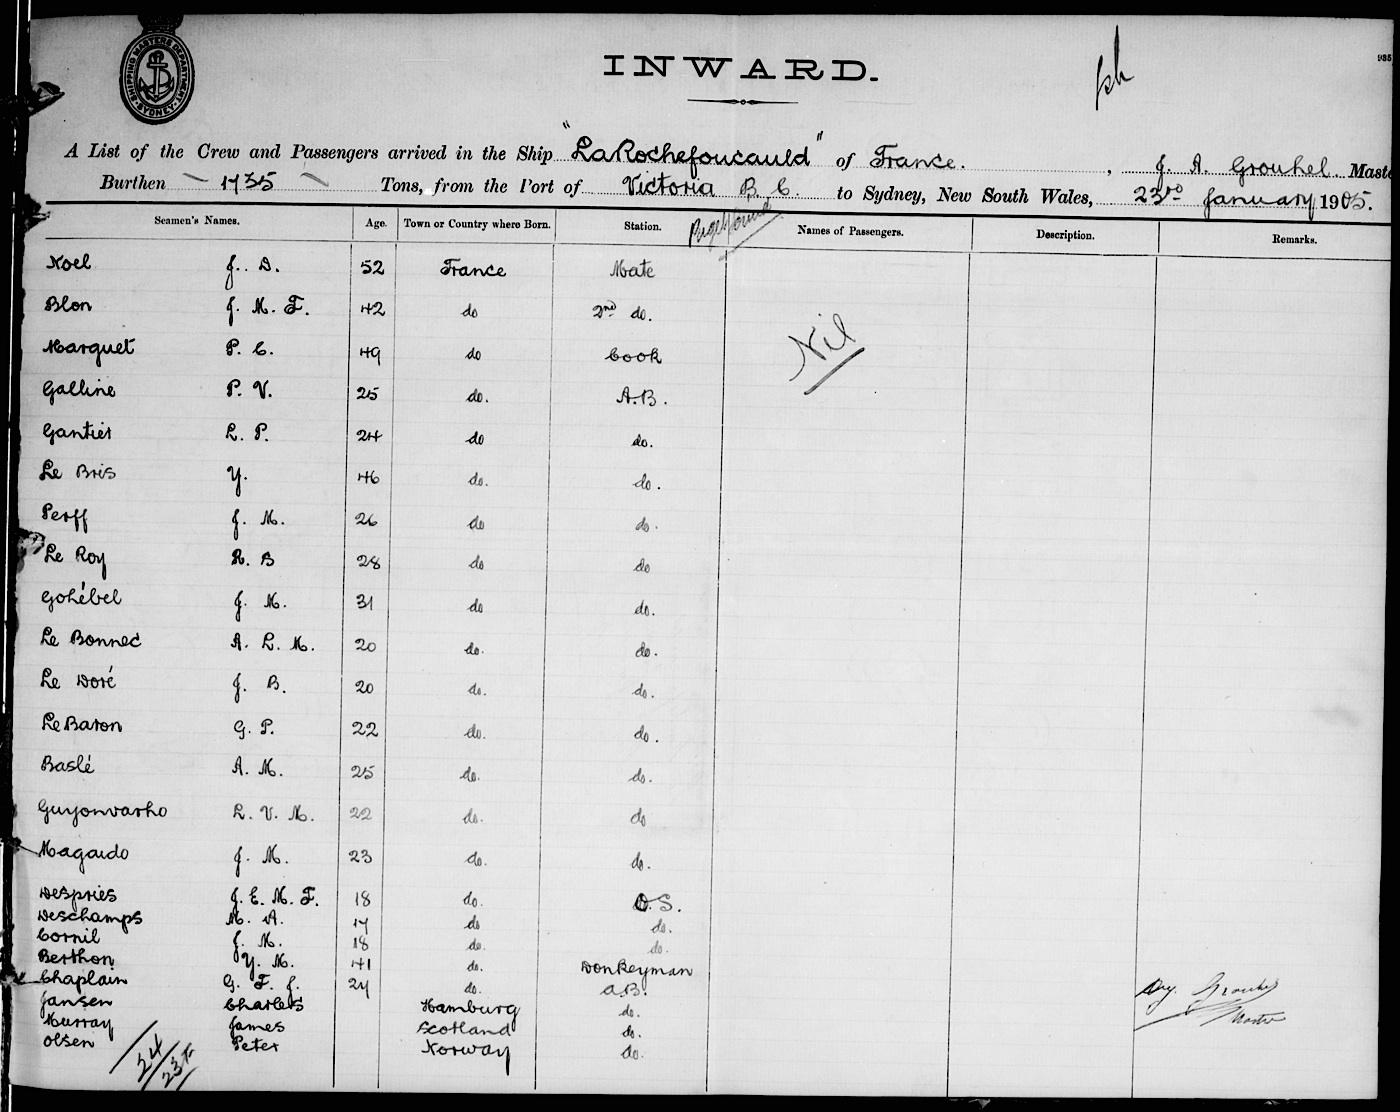 SHIPPING MASTERS DEPARTMENT SYDNEY
INWARD.
935
A List of the Crew and Passengers arrived in the Ship "La Rochefoucauld" of France. , J. A. Grouhel Maste
Burthen 1735 Tons, from the Port of Victoria B. C. to Sydney, New South Wales, 23rd January 1905.
Seamen's Names. Age. Town or Country where Born. Station. Names of Passengers. Description. Remarks.
Noel J. D. 52 France Mate
Blon J. M. F. 42 do 2nd do.
Nil
Marguet P. C. 49 do Cook
Galline P. V. 25 do. A.B.
Gantier L. P. 24 do do.
Le Bris Y. 46 do. do.
Perff J. M. 26 do do.
Le Roy R. B 28 do do
Gohébel J. M. 31 do do.
Le Bonnec A. L. M. 20 do. do.
Le Doré J. B. 20 do. do.
Le Baron G. P. 22 do. do.
Baslé A. M. 25 do. do.
Guyonvarho L. V. M. 22 do. do
Magardo J. M. 23 do. do.
Despries J. E. M. F. 18 do. O.S.
Deschamps M. A. 17 do do.
Cornil J. M. 18 do. do.
Berthon Y. M. 41 do. Donkeyman
Chaplain G. F. J. 27 do. A.B.
Jansen Charles Hamburg do.
Murray James Scotland do.
Olsen Peter Norway do.
Grouhel
Master
24
23 F